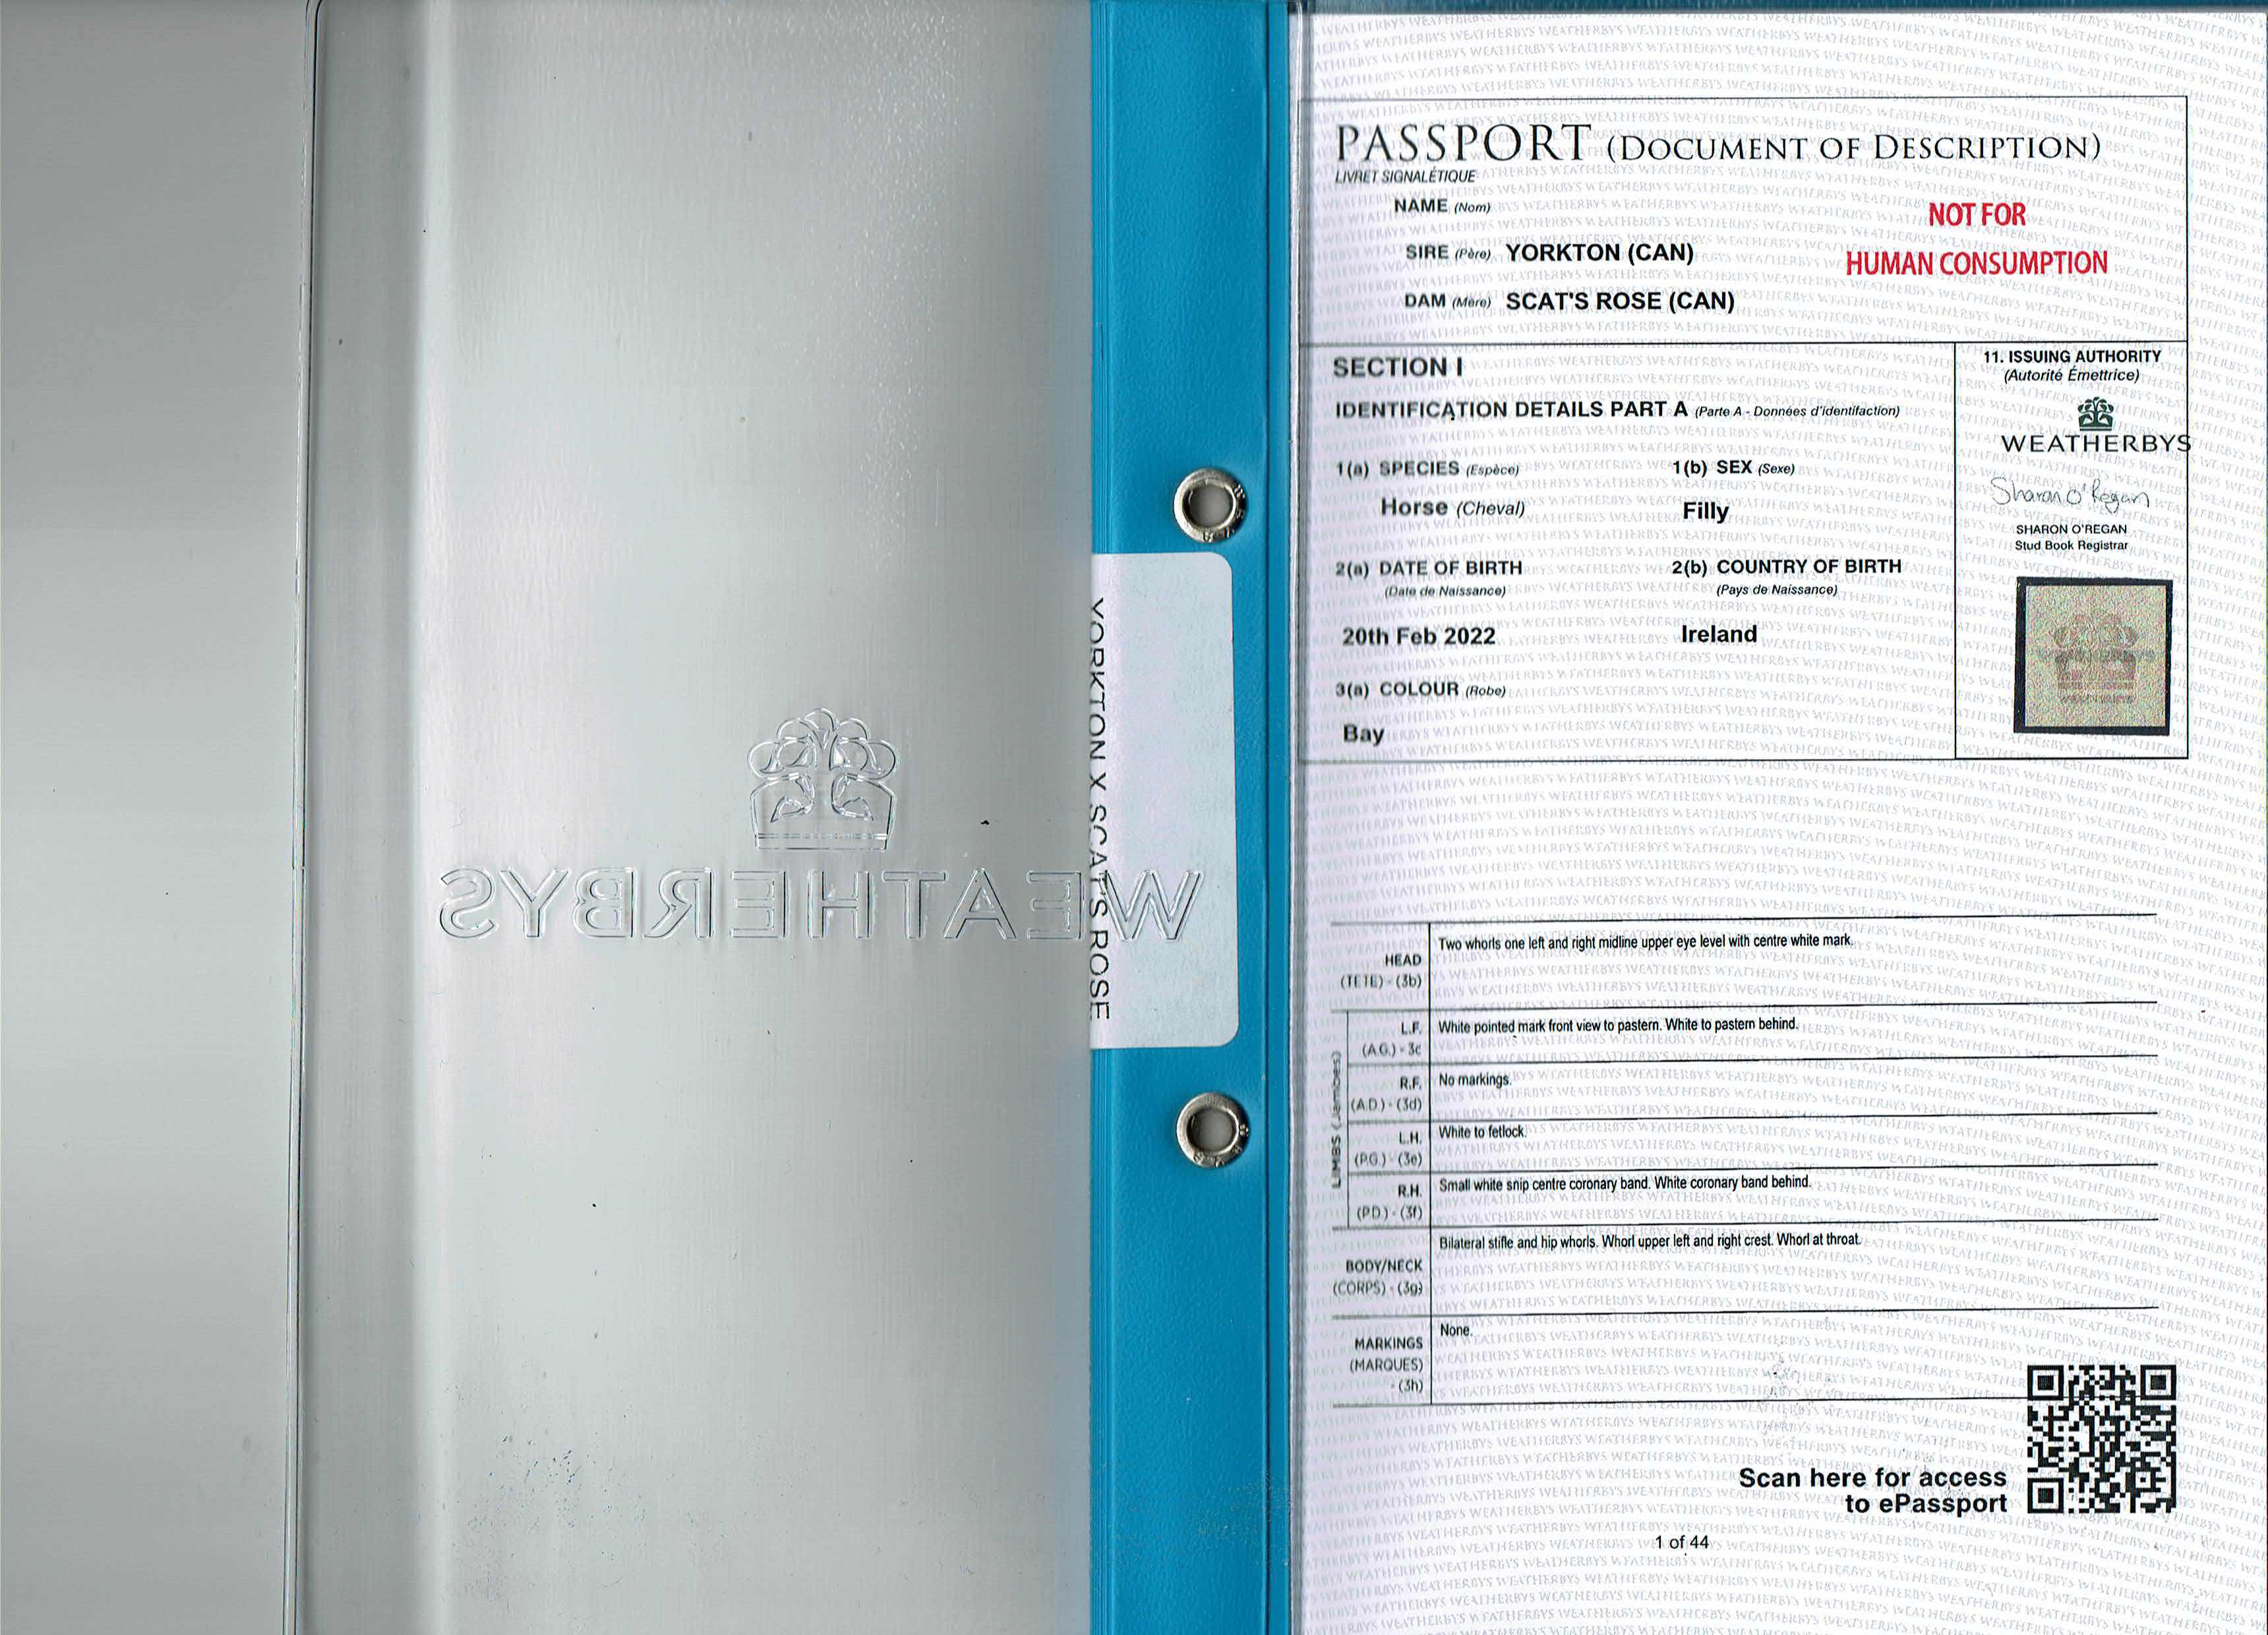 WEATHERBYS
YORKTON X SCAT'S ROSE
PASSPORT (DOCUMENT OF DESCRIPTION)
LIVRET SIGNALÉTIQUE
NAME (Nom)
NOT FOR
HUMAN CONSUMPTION
SIRE (Père) YORKTON (CAN)
DAM (Mère) SCAT'S ROSE (CAN)
SECTION I
IDENTIFICATION DETAILS PART A (Parte A - Données d'identifaction)
1(a) SPECIES (Espèce)
1(b) SEX (Sexe)
Horse (Cheval)
Filly
2(a) DATE OF BIRTH
(Date de Naissance)
2(b) COUNTRY OF BIRTH
(Pays de Naissance)
20th Feb 2022
Ireland
3(a) COLOUR (Robe)
Bay
11. ISSUING AUTHORITY
(Autorité Émettrice)
WEATHERBYS
Sharon O'Regan
SHARON O'REGAN
Stud Book Registrar
HEAD
(TETE) - (3b)
Two whorls one left and right midline upper eye level with centre white mark.
LIMBS (Jambes)
L.F.
(A.G.) - 3c
White pointed mark front view to pastern. White to pastern behind.
R.F.
(A.D.) - (3d)
No markings.
L.H.
(P.G.) - (3e)
White to fetlock.
R.H.
(P.D.) - (3f)
Small white snip centre coronary band. White coronary band behind.
BODY/NECK
(CORPS) - (3g)
Bilateral stifle and hip whorls. Whorl upper left and right crest. Whorl at throat.
MARKINGS
(MARQUES)
- (3h)
None.
Scan here for access
to ePassport
1 of 44